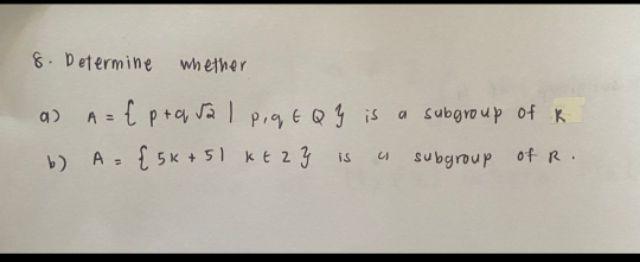 8. Determine whether
a) A = { p+q √2 | p,q ∈ Q } is a subgroup of R
b) A = { 5k + 5 | k ∈ Z } is a subgroup of R.